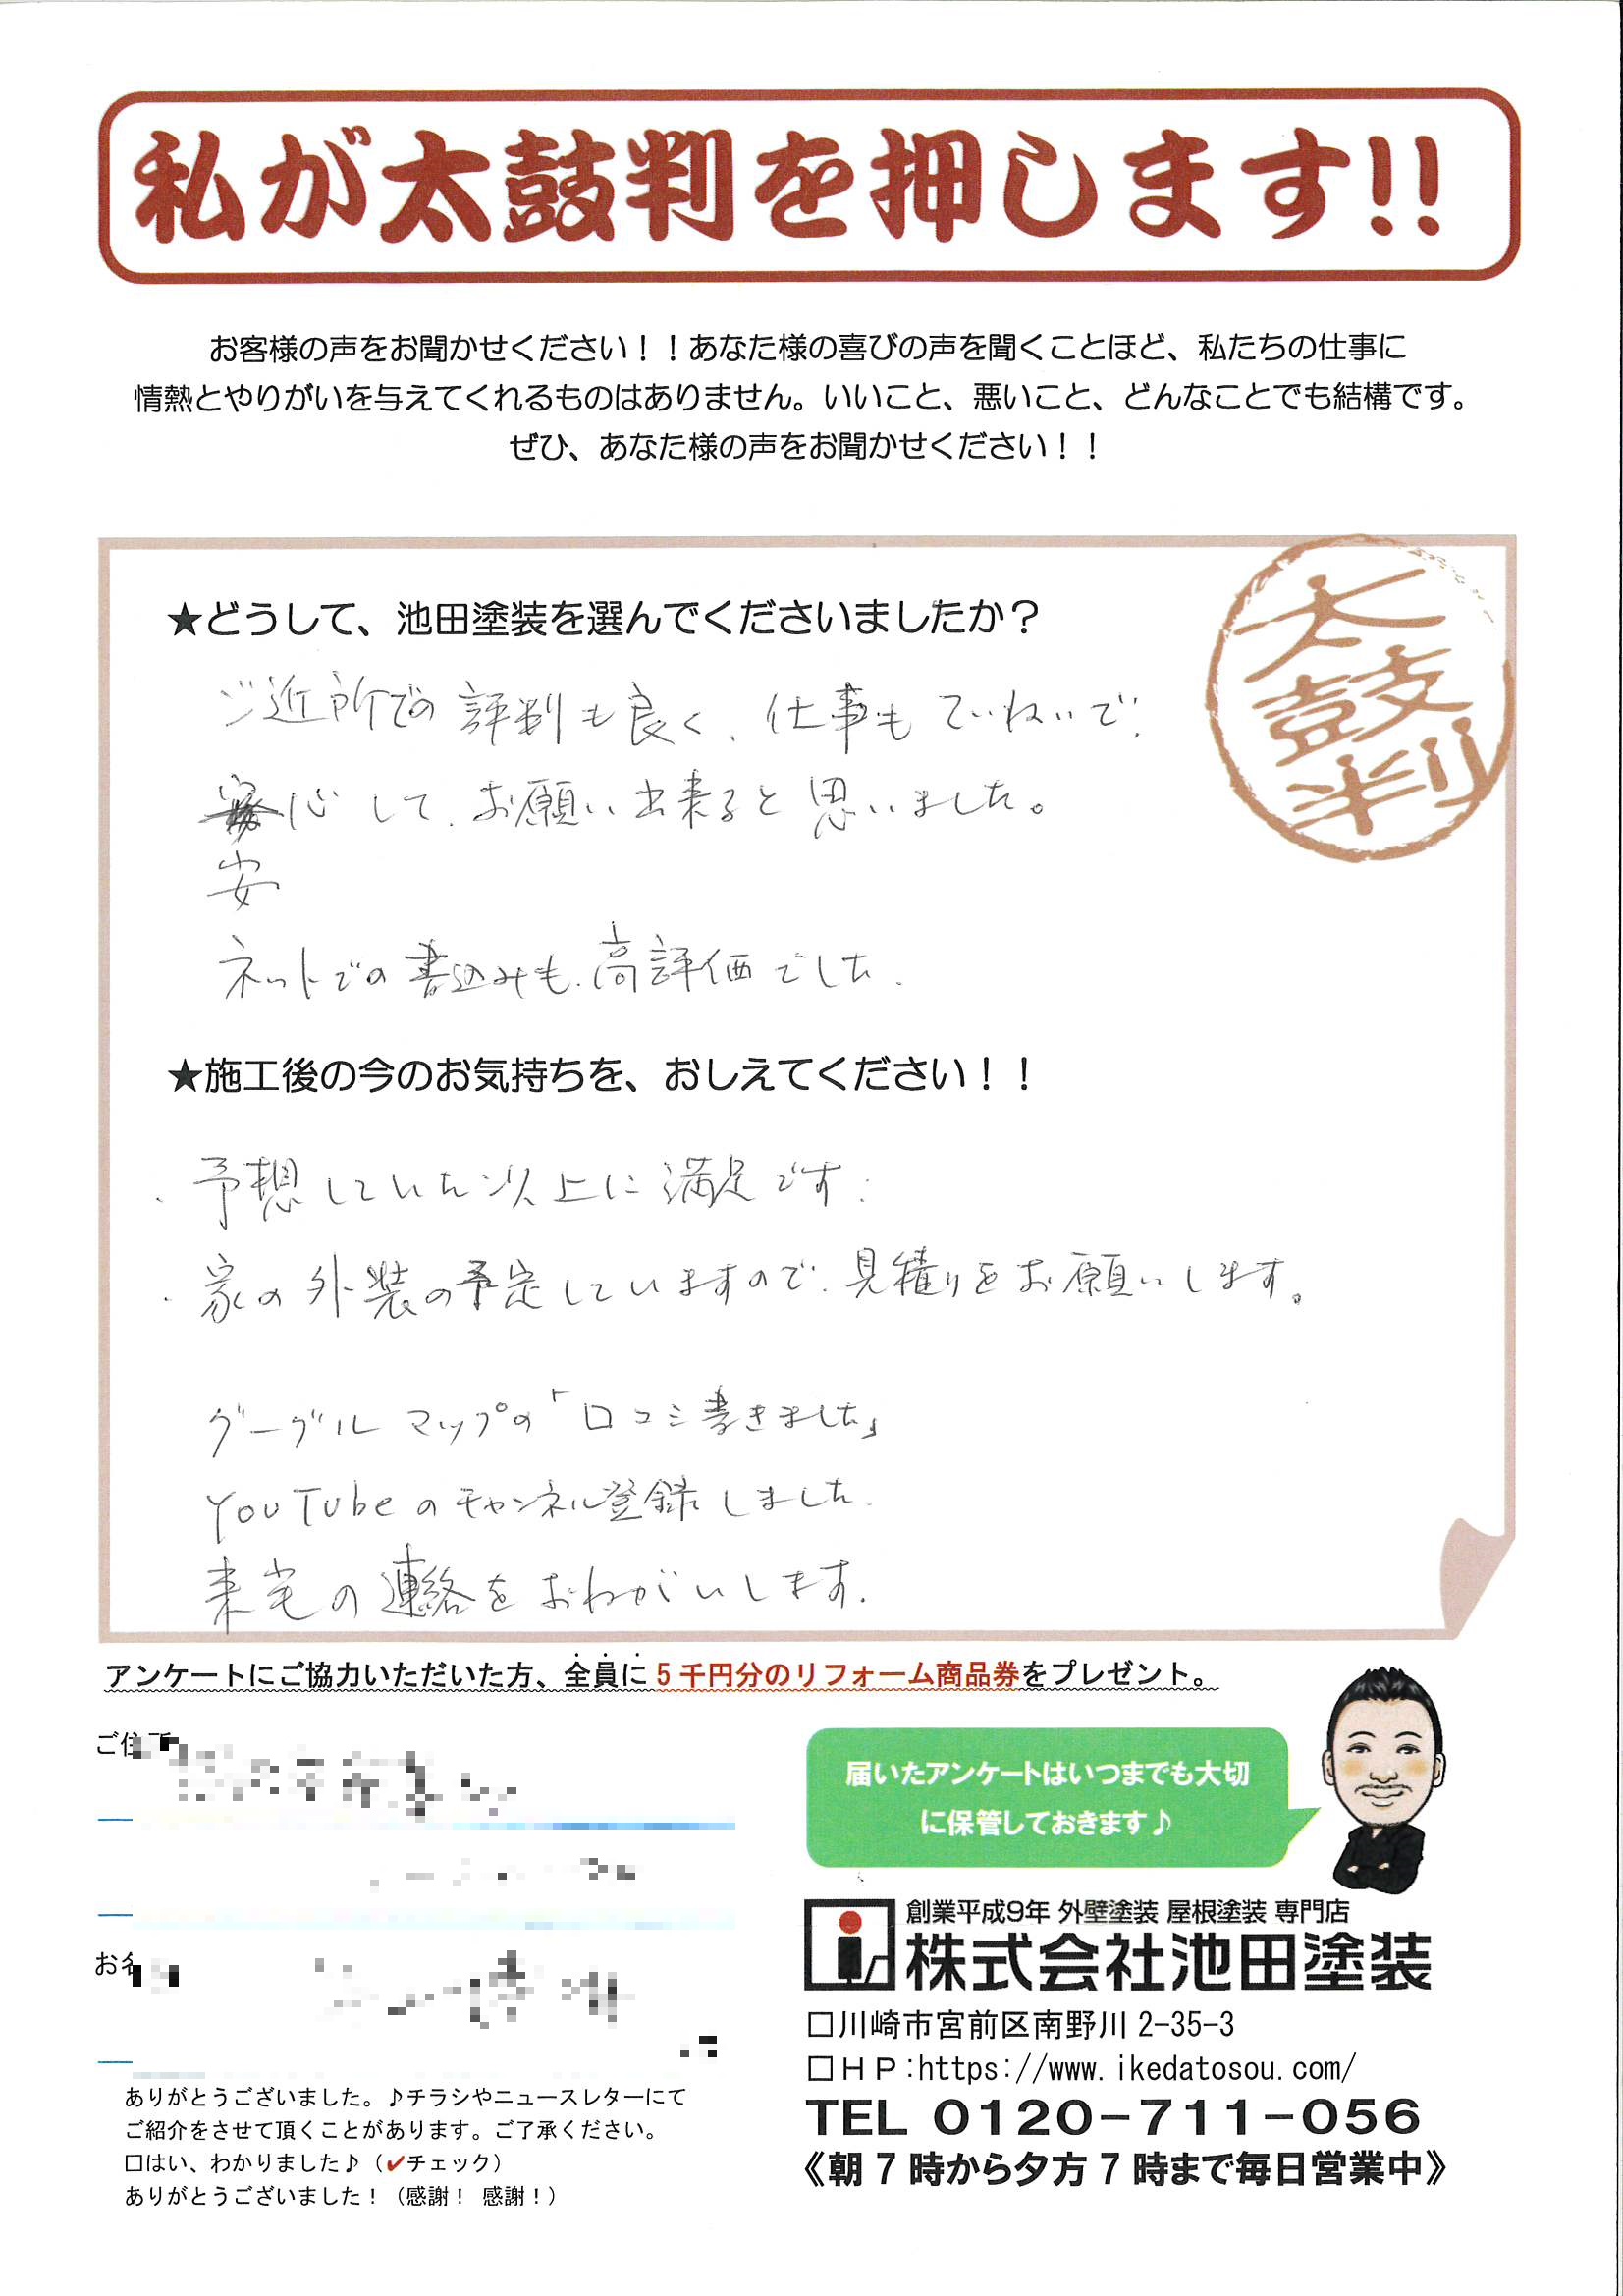 私が太鼓判を押します!!
お客様の声をお聞かせください！！あなた様の喜びの声を聞くことほど、私たちの仕事に
情熱とやりがいを与えてくれるものはありません。いいこと、悪いこと、どんなことでも結構です。
ぜひ、あなた様の声をお聞かせください！！
太鼓判
★どうして、池田塗装を選んでくださいましたか？
ご近所での評判も良く、仕事もていねいで、
心して、お願い出来ると思いました。
安
ネットでの書込みも、高評価でした、
★施工後の今のお気持ちを、おしえてください！！
・予想していた以上に満足です、
・家の外装の予定していますので、見積りをお願いします。
グーグルマップの「口コミ書きました」
YouTubeのチャンネル登録しました、
来宅の連絡をおねがいします、
アンケートにご協力いただいた方、全員に5千円分のリフォーム商品券をプレゼント。
ご住
お名
届いたアンケートはいつまでも大切
に保管しておきます♪
創業平成9年 外壁塗装 屋根塗装 専門店
株式会社池田塗装
□川崎市宮前区南野川2-35-3
□ＨＰ:https://www.ikedatosou.com/
TEL 0120-711-056
《朝7時から夕方7時まで毎日営業中》
ありがとうございました。♪チラシやニュースレターにて
ご紹介をさせて頂くことがあります。ご了承ください。
□はい、わかりました♪（✔チェック）
ありがとうございました！（感謝！ 感謝！）